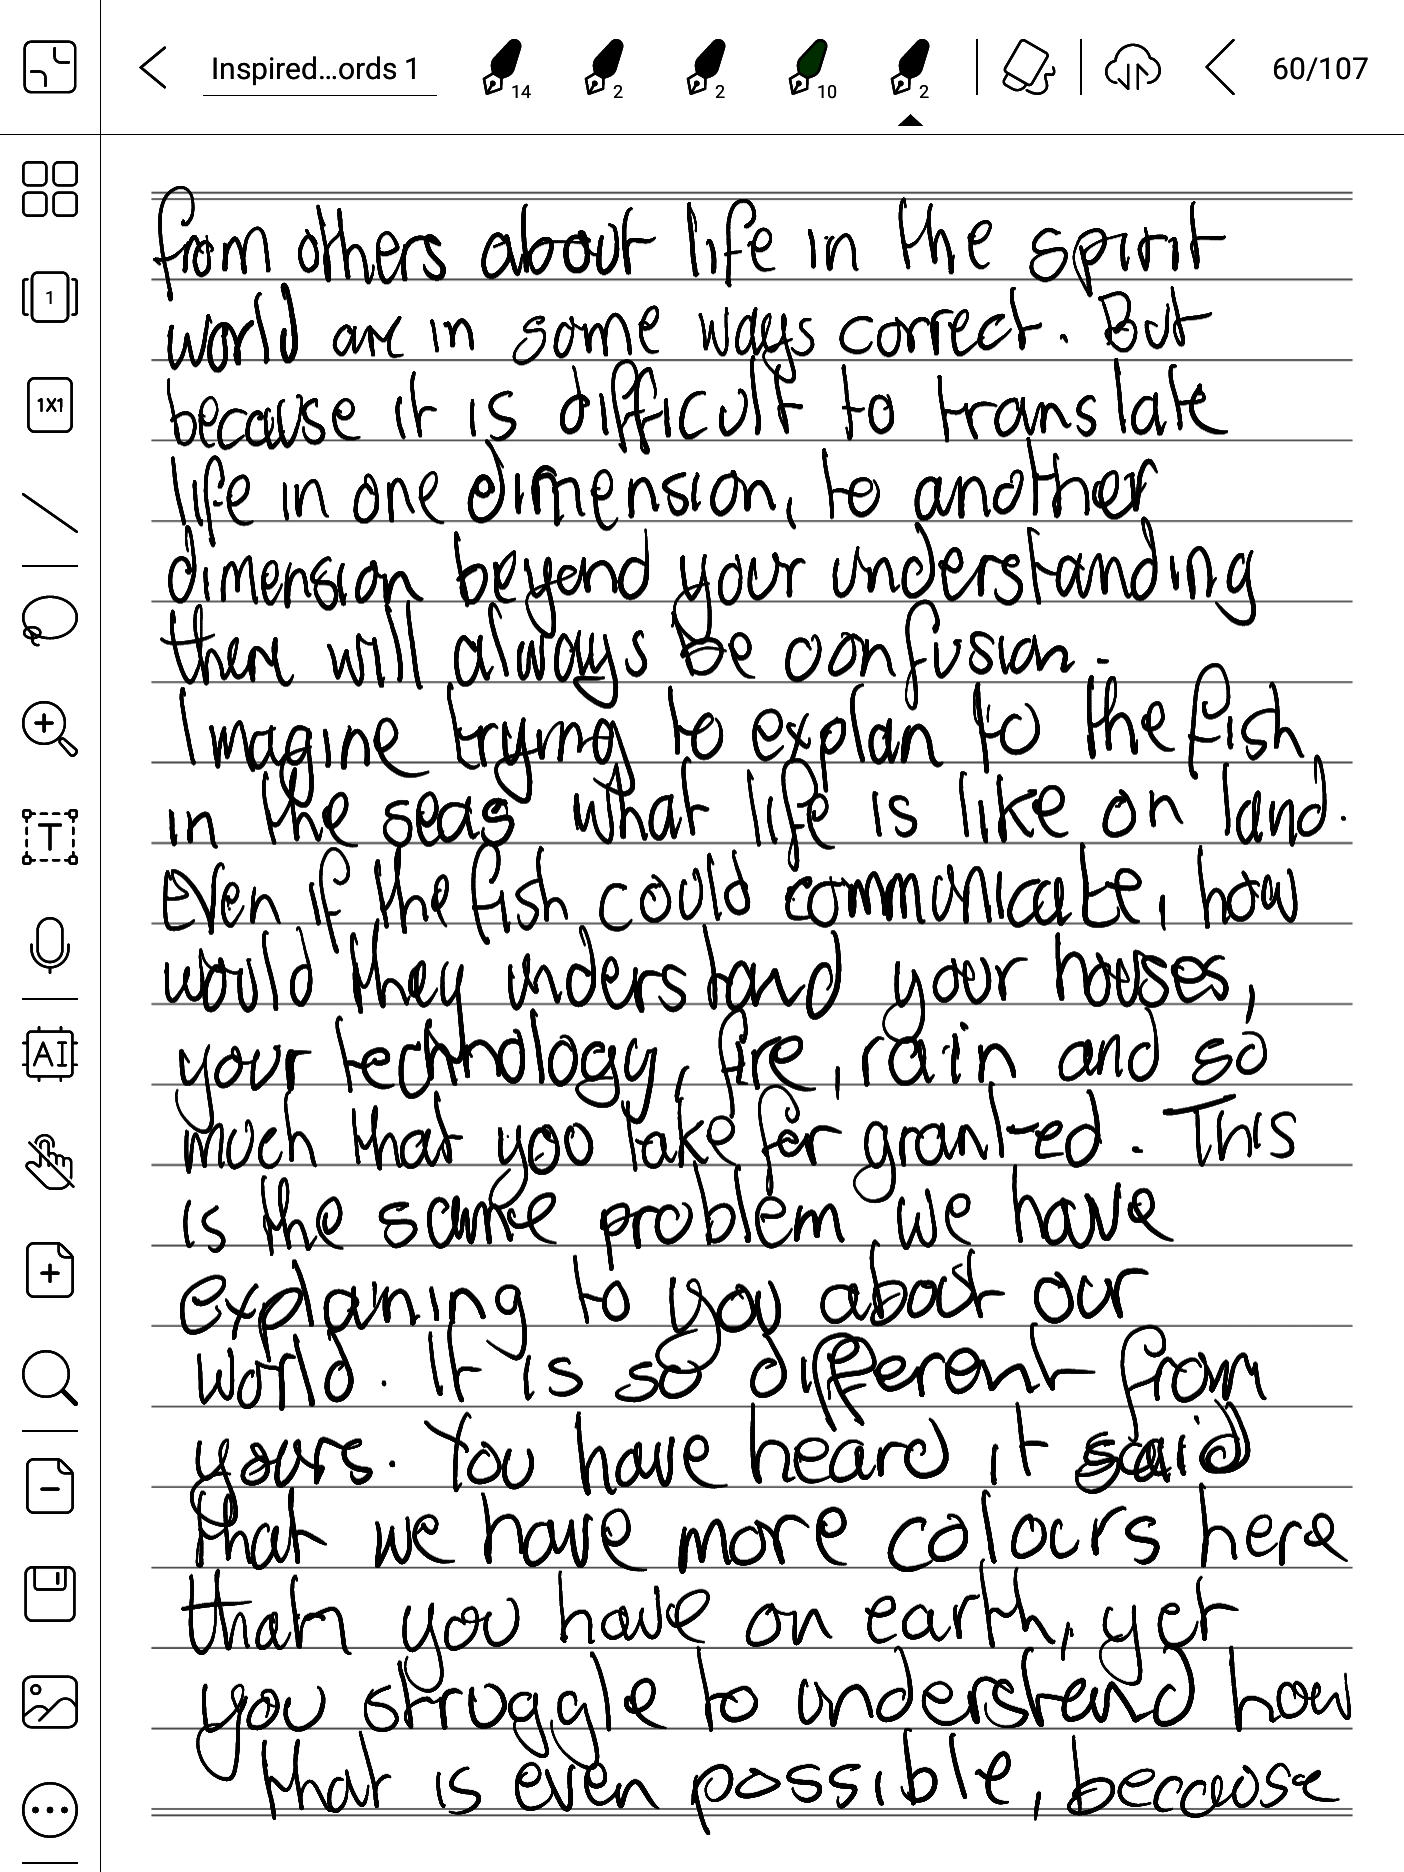 Inspired...ords 1
14
2
2
10
2
60/107
1
1X1
T
AI
from others about life in the spirit
world are in some ways correct. But
because it is difficult to translate
life in one dimension, to another
dimension beyond your understanding
there will always be confusion.
Imagine trying to explan to the fish
in the seas what life is like on land.
Even if the fish could communicate, how
would they understand your houses,
your technology, fire, rain and so
much that you take for granted. This
is the same problem we have
explaining to you about our
world. It is so different from
yours. You have heard it said
that we have more colours here
than you have on earth, yet
you struggle to understand how
that is even possible, because